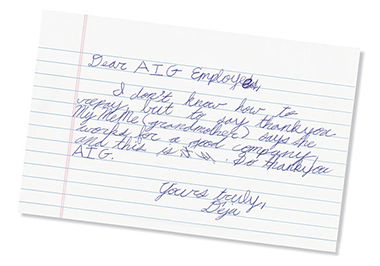 Dear AIG Employees,
I don't know how to
repay but to say thankyou
My MeMe (grandmother) says she
works for a good company
and this is . So thankyou
AIG.
Yours truly,
Deja